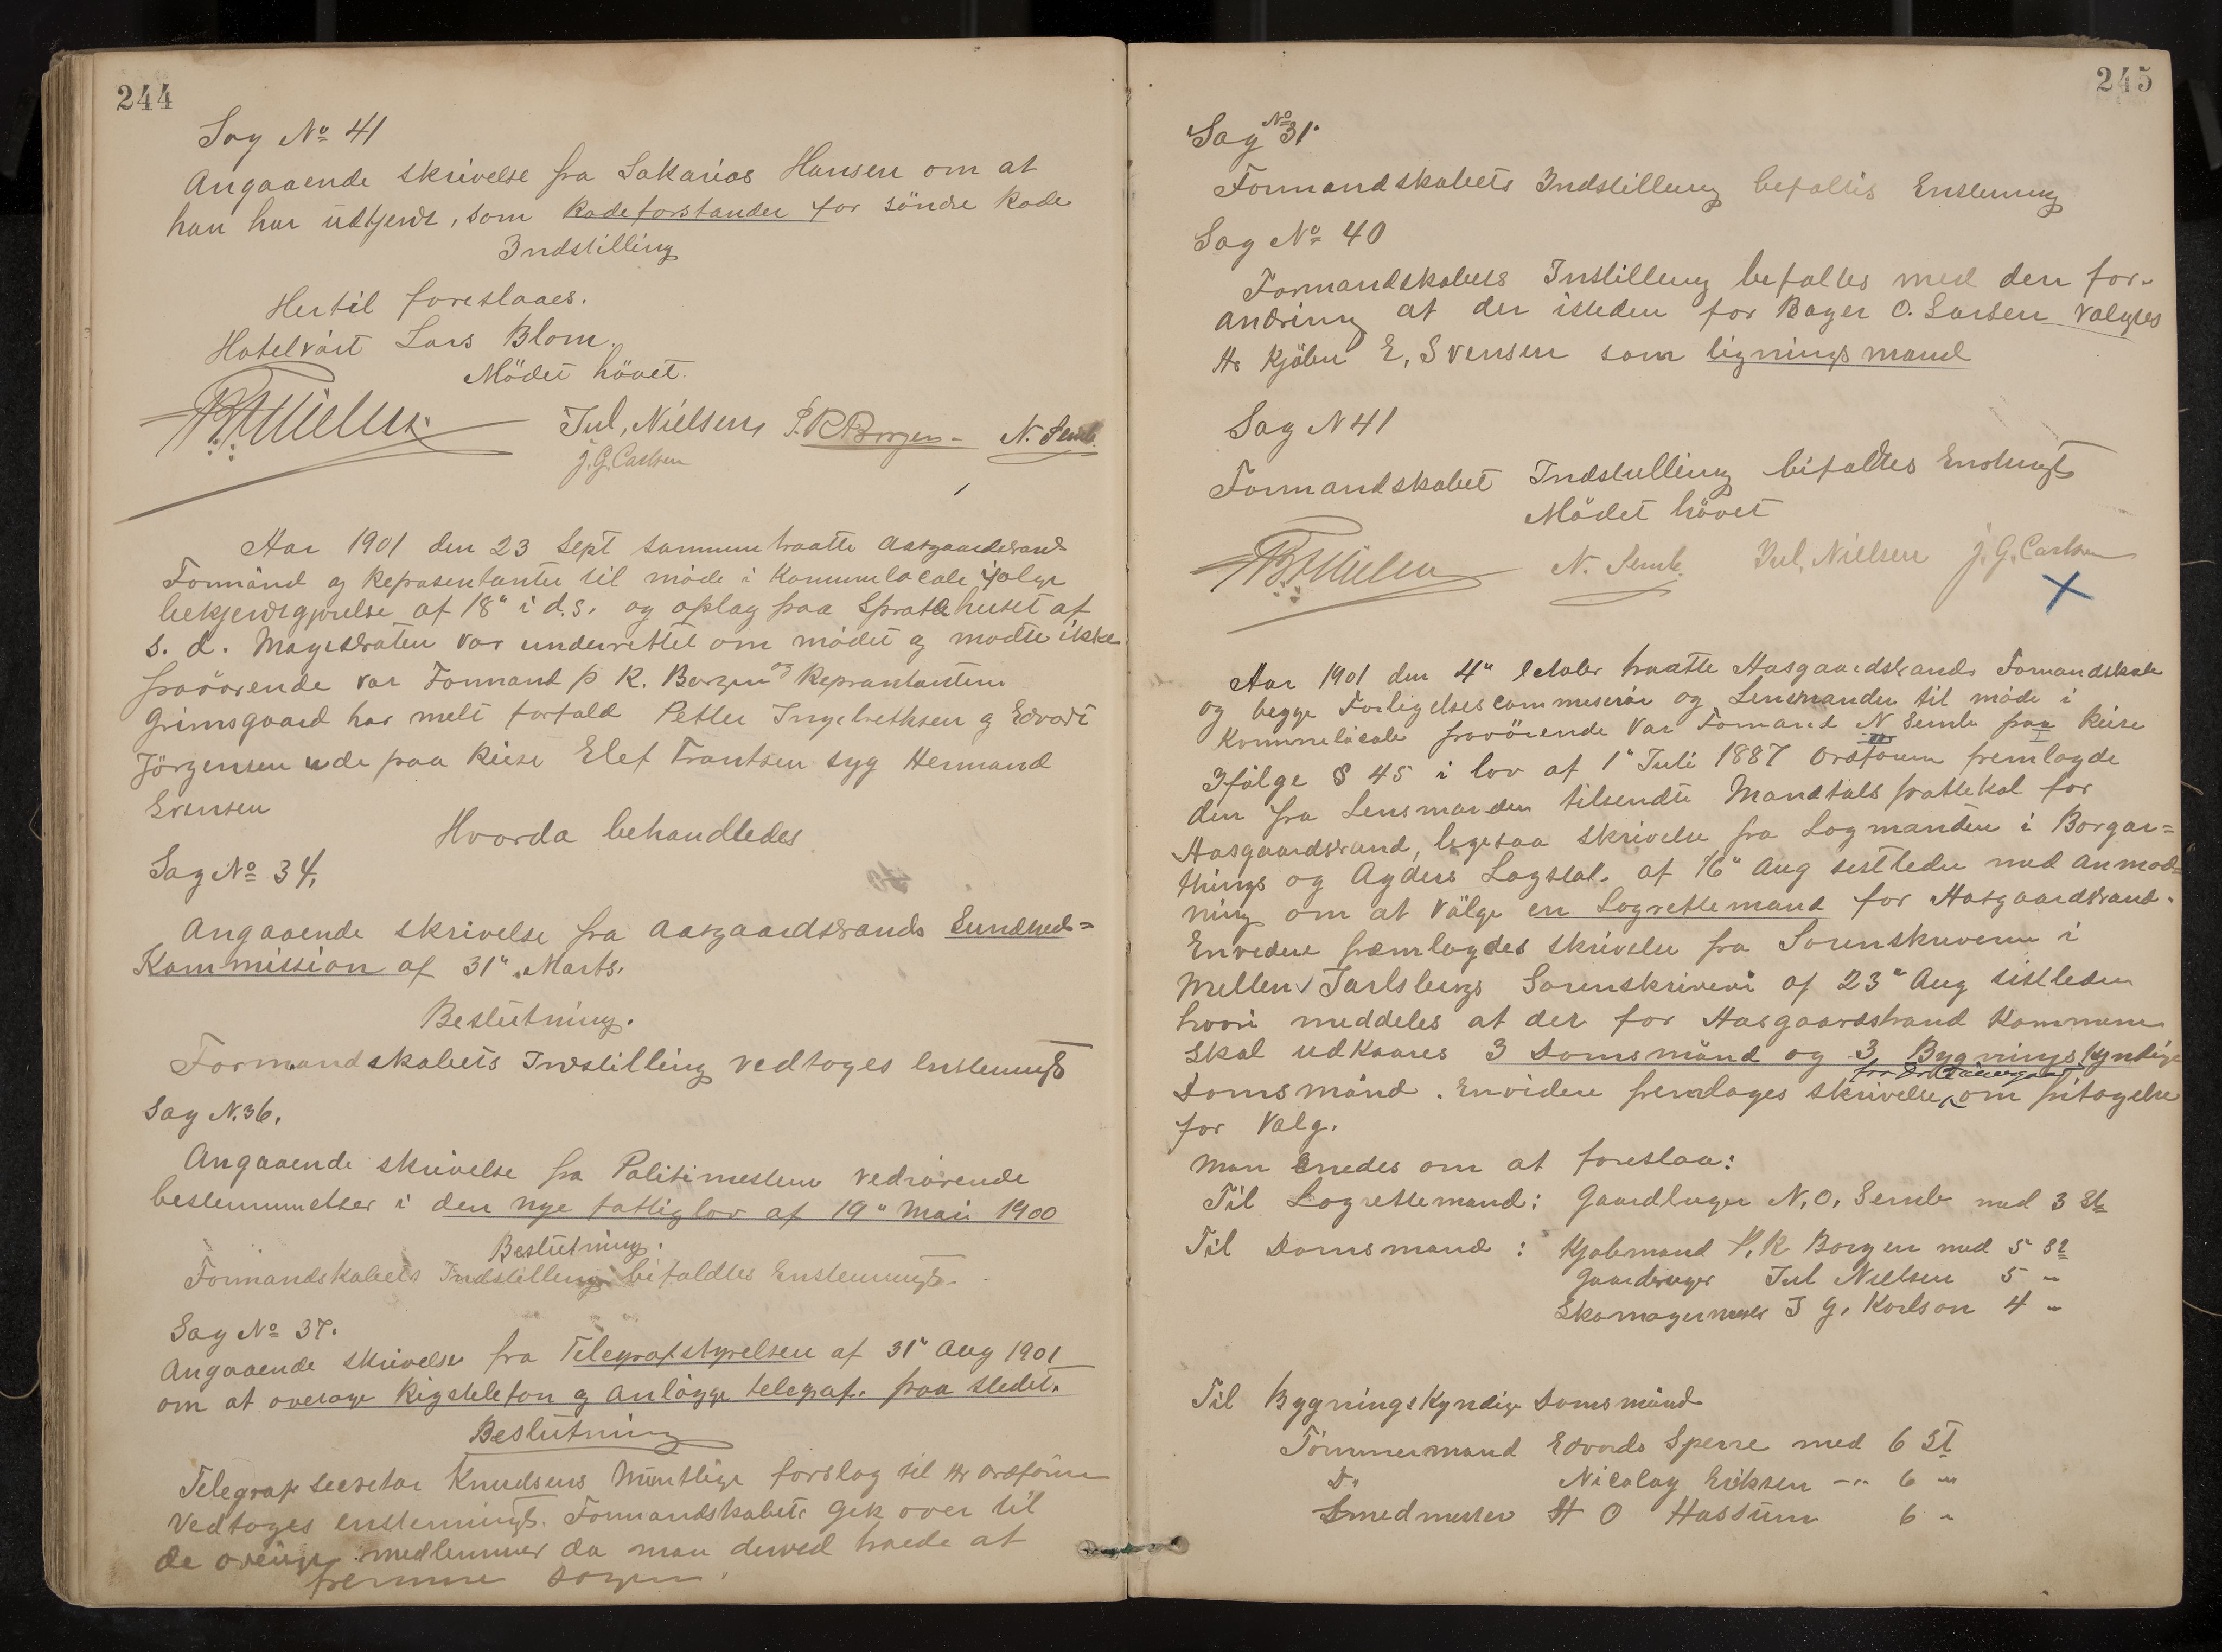 244
Sag No 41
Angaaende skrivelse fra Sakarias Hansen om at
han har udtjent, som Rodeforstander for söndre Rode
Indstilling
Hertil foreslaaes.
Hotelvärt Lars Blom.
Mödet hövet.
Jul, Nielsen, P. R Borgen N. Semb.
J. G. Carlsen
Aar 1901 den 23 Sept sammentraatte Aasgaardstrands
Formänd og Repræsentanter til möde i Komunelocale ifølge
bekjendtgjørelse af 18" i d.s. og opslag paa Sprøtehuset af
s. d. Magistraten var underrettet om mødet og mødte ikke
fraværende var Formand P R. Borgen og Repræntanterne
Grimsgaard har melt forfald Petter Ingebrethsen og Edvart
Jörgensen ude paa Reise Elef Frantsen syg Hermand
Evensen
Hvorda behandledes
Sag No 34,
Angaaende skrivelse fra Aasgaardstrands Sundheds=
Kommission af 31" Marts.
Beslutning.
Formandskabets Indstilling vedtoges Enstemmigt
Sag N. 36.
Angaaende skrivelse fra Politimesteren vedrörende
bestemmelser i den nye fattiglov af 19" Mai 1900
Beslutning.
Formandskabets Indstilling bifaldtes Enstemmigt.
Sag No 37.
Angaaende skrivelse fra Telegrafstyrelsen af 31" Aug 1901
om at overtage Rigstelefon og Anlägge telegraf. paa stedet.
Beslutning
Telegraf secretær Knudsens Mundtlige forslag til Hr ordförer
Vedtoges enstemmigt. Formandskabet gik over til
de övrige medlemmer da man derved troede at
fremme sagen.
245
Sag No 31.
Formandskabets Indstilling befaltes Enstemmig
Sag No 40
Formandskabets Instilling befaltes med den for-
andring at der isteden for Bager O. Larsen valgtes
Hr Kjöbm E, Svensen som ligningsmand
Sag N 41
Formandskabet Indstilling bifaldtes Enstemigt
Mödet hövet
N. Semb. Jul, Nielsen J. G. Carlsen
Aar 1901 den 4" October traatte Aasgaardstrands Formandskab
og begge Forligelsescommiserær og Lensmanden til möde i
Kommunelocale fraværende var Formand N Semb paa Reise
Ifölge § 45 i lov af 1" Juli 1887 Ordføren fremlagde
den fra Lensmanden tilsendte Mandtalsprottekol for
Aasgaardstrand, ligesaa skrivelse fra Logmanden i Borgar=
things og Agders Logstol. af 16" Aug sistleden med Anmod=
ning om at välge en Logrettemand for Aasgaardstrand.
Envidere fremlagdes skrivelse fra Sorenskriveren i
Mellem Jarlsbergs Sorenskriveri af 23" Aug sistleden
hvori meddeles at der for Aasgaardstrand Kommune
skal udkaares 3 Domsmänd og 3 Bygningskyndige
Domsmänd. Envidere fremlages skrivelse, om fritagelse
for Valg.
Man enedes om at foreslaa:
Til Logrettemand: Gaardbruger N. O. Semb med 3 St
Til Domsmænd : Kjøbmand P. R Borgen med 5 St
Gaardbruger Jul Nielsen 5 "
Skomagermester J G. Karlson 4 "
Til Bygningskyndige Domsmänd
Tömmermand Edvards Sperre med 6 St
Do Nicolay Eriksen - " 6 "
Smedmester H O Hassum 6 "